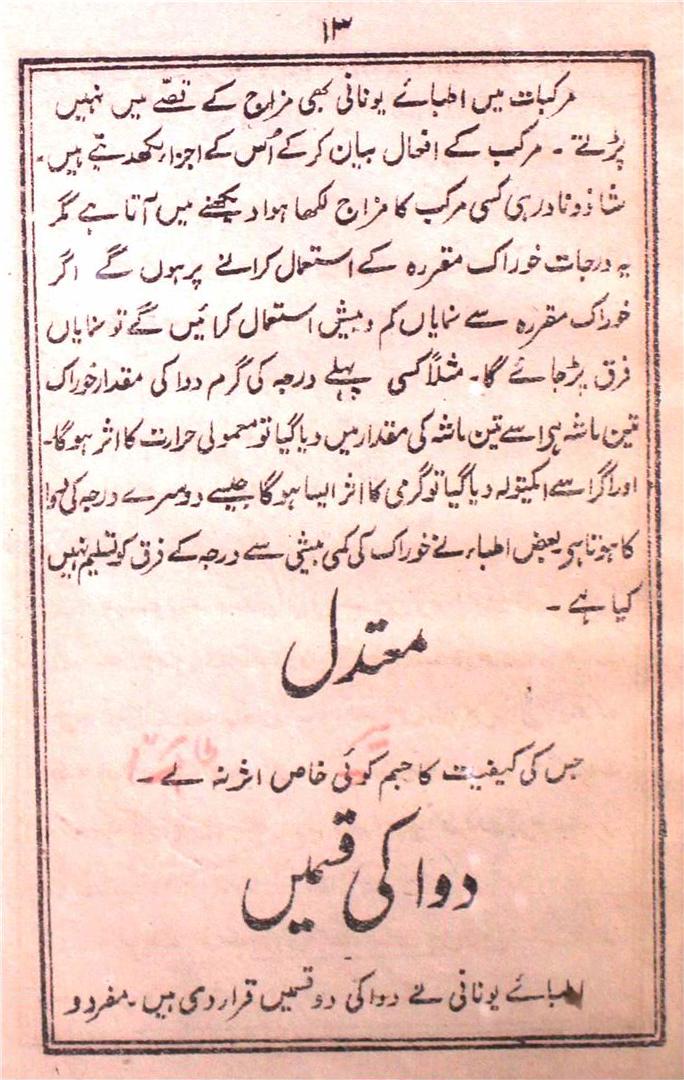 ۱۳
مرکبات میں اطبائے یونانی بھی مزاج کے قصّے میں نہیں
پڑتے ۔ مرکب کے افعال بیان کرکے اُس کے اجزاء لکھدیتے ہیں۔
شاذونادرہی کسی مرکب کا مزاج لکھا ہوا دیکھنے میں آتا ہے مگر
یہ درجات خوراک مقررہ کے استعمال کرانے پر ہوں گے اگر
خوراک مقررہ سے نمایاں کم وبیش استعمال کرائیں گے تو نمایاں
فرق پڑجائے گا۔ مثلاً کسی پہلے درجہ کی گرم دوا کی مقدار خوراک
تین ماشہ ہو اسے تین ماشہ کی مقدار میں دیا گیا تو معمولی حرارت کا اثر ہوگا۔
اور اگر اسے ایکتولہ دیا گیا تو گرمی کا اثر ایسا ہوگا جیسے دوسرے درجہ کی دوا
کا ہوتا ہو بعض اطباء نے خوراک کی کمی بیشی سے درجہ کے فرق کو تسلیم نہیں
کیا ہے ۔
معتدل
جس کی کیفیت کا جسم کوئی خاص اثر نہ لے ۔
دوا کی قسمیں
اطبائے یونانی نے دوا کی دو قسمیں قرار دی ہیں ۔ مفرد و